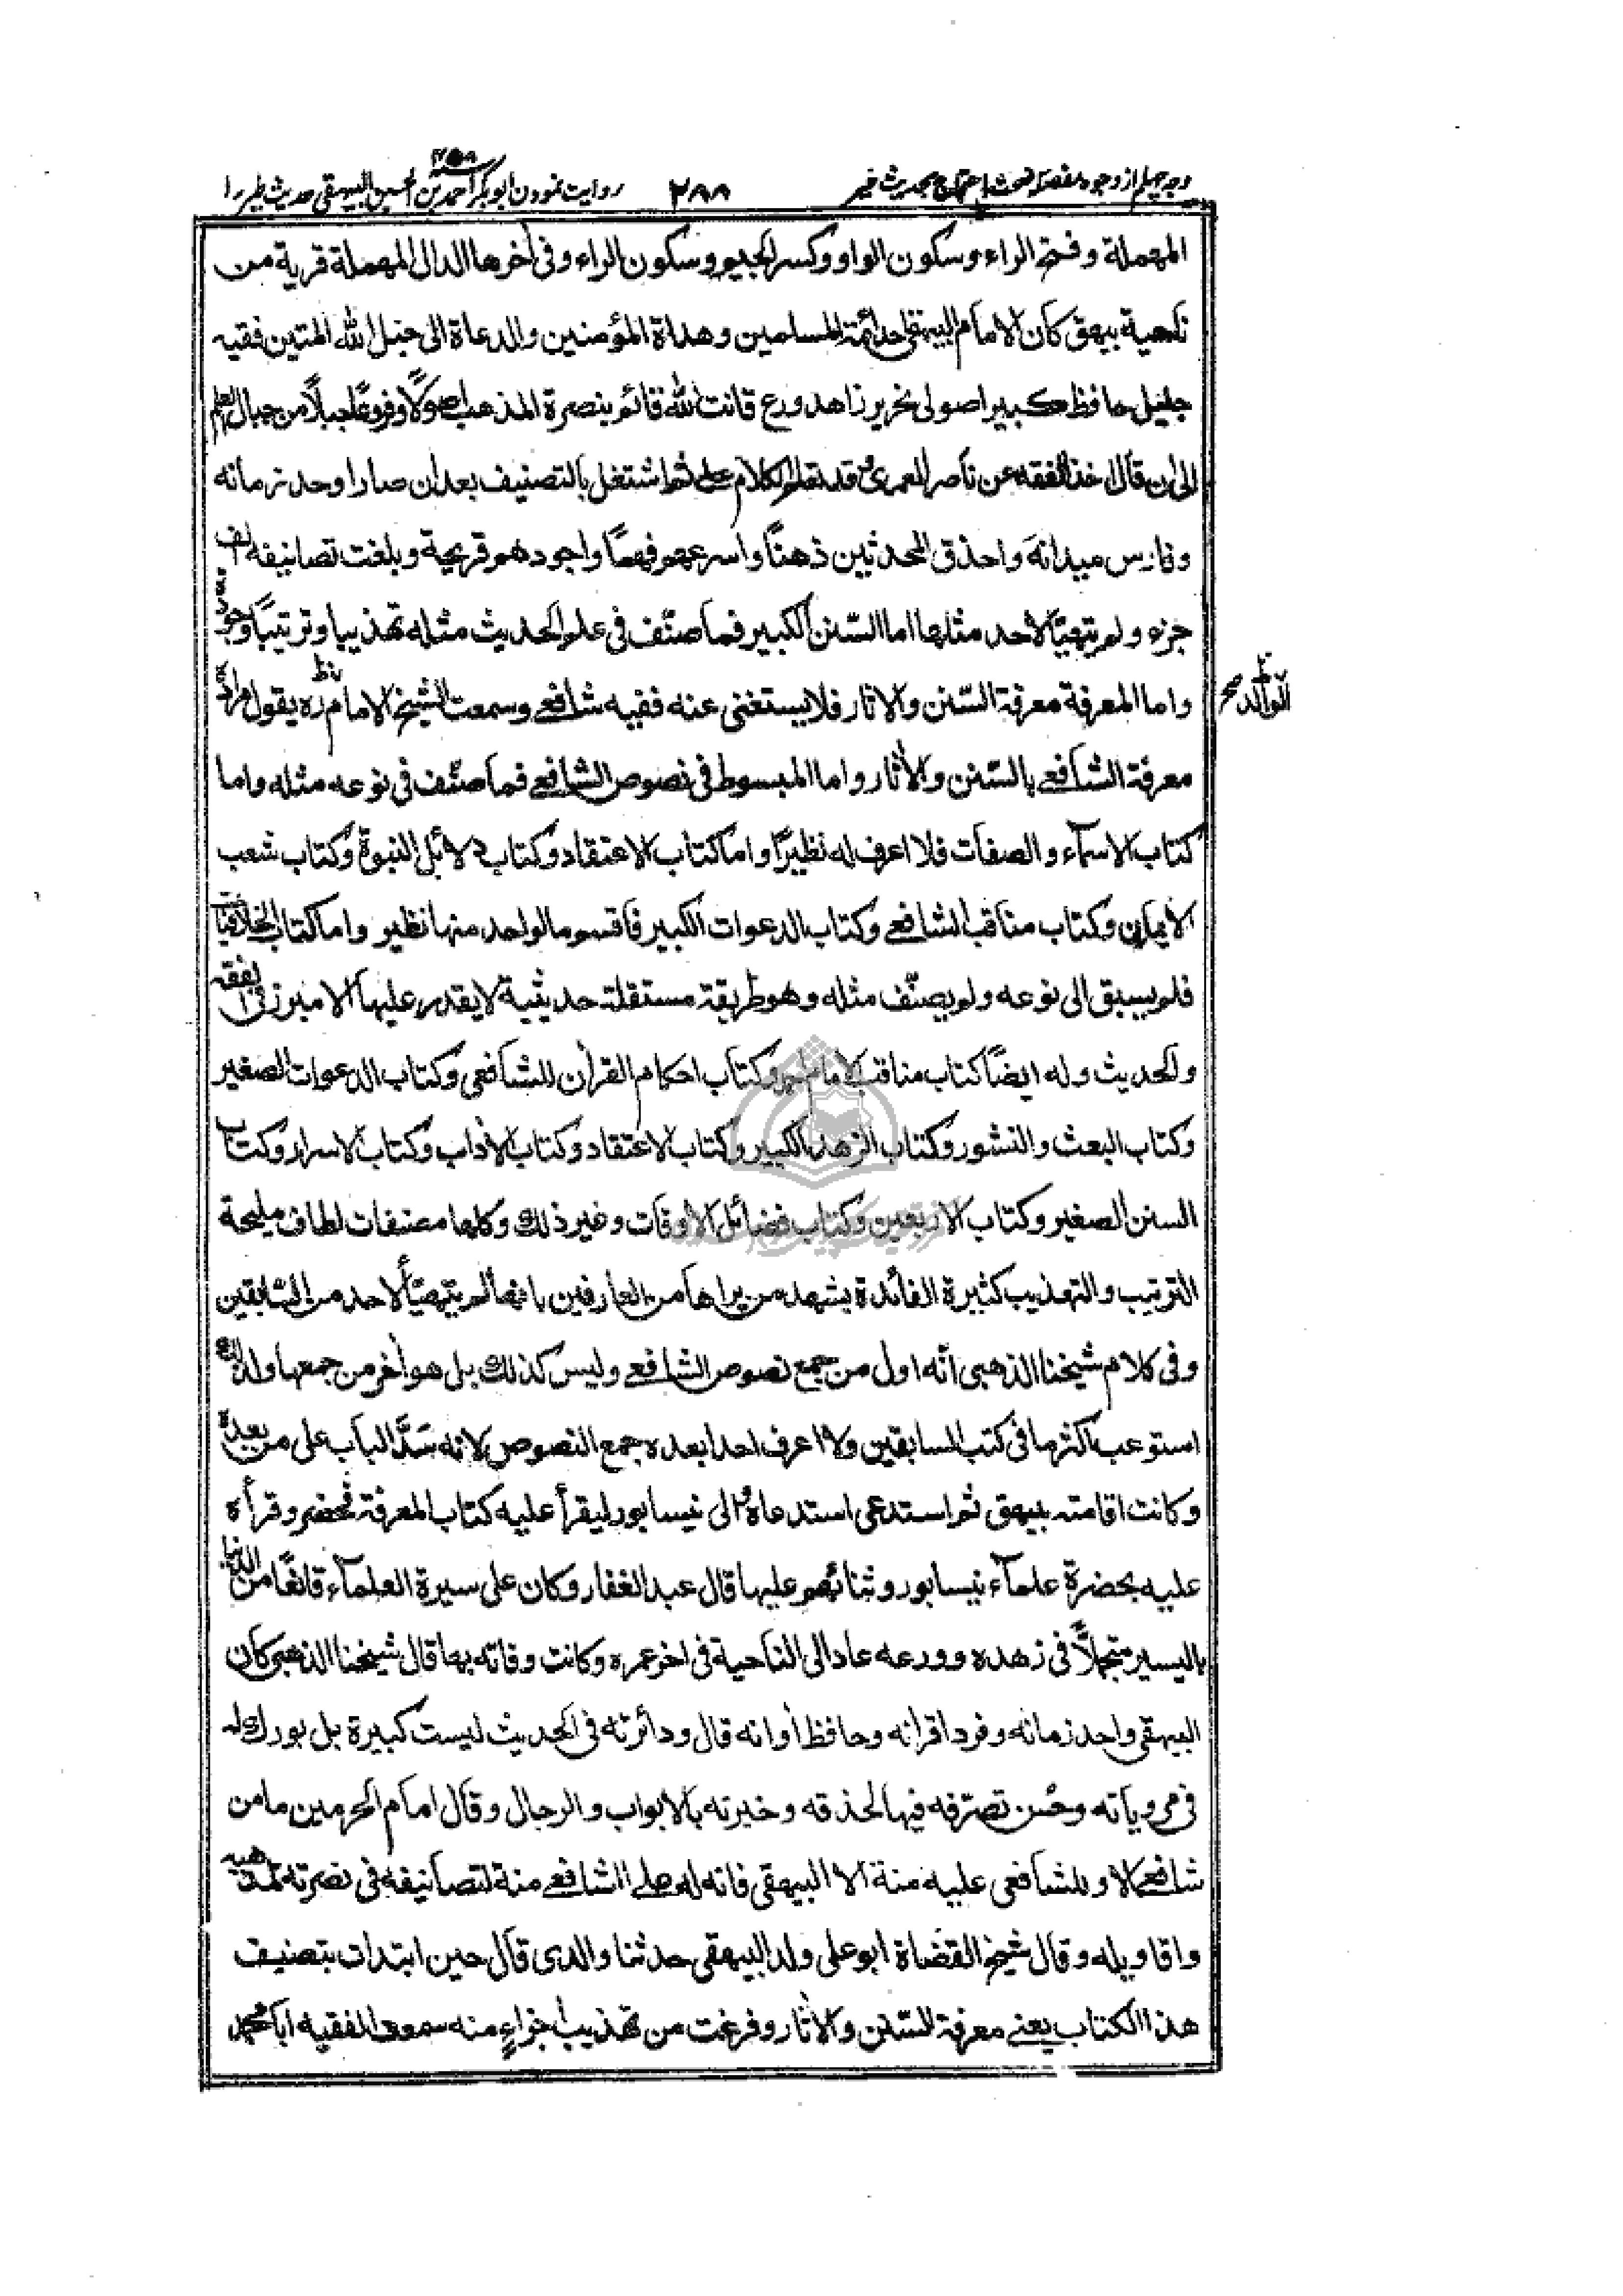 وجه چهلم از وجوه مفصله صحت احتجاج بحدیث خیر
۲۸۸
روایت نمودن ابوبکر احمد بن الحسین البیهقی حدیث طیر را
سنه ۴۵۸
المهملة وفتح الراء وسكون الواو وكسر الجيم وسكون الراء وفى اخرها الدال المهملة قرية من
ناحية بيهق كان الامام البيهقى احد ائمة المسلمين وهداة المؤمنين والدعاة الى حبل الله المتين فقيه
جليل حافظ كبير اصولى نحرير زاهد ورع قانت لله قائم بنصرة المذهب اصولاً وفروعًا جبلاً من جبال العلم
الى ان قال اخذ الفقه عن ناصر العمرى وقد تعلم الكلام على ثم اشتغل بالتصنيف بعد ان صار اوحد زمانه
وفارس ميدانه واحذق المحدثين ذهنًا واسرعهم فهمًا واجودهم قريحة وبلغت تصانيفه الف
جزء ولم يتهيّأ لاحد مثلها اما السّنن الكبير فما صنّف فى علم الحديث مثله تهذيبا وترتيبًا وجودة
واما المعرفة معرفة السّنن والاثار فلا يستغنى عنه فقيه شافعے وسمعت الشيخ الامام ره يقول مراده
الوالد صح
معرفة الشافعے بالسّنن والاثار واما المبسوط فى نصوص الشافعے فما صنّف فى نوعه مثله واما
كتاب الاسمآء والصفات فلا اعرف له نظيرًا واما كتاب الاعتقاد وكتاب دلائل النبوة وكتاب شعب
الايمان وكتاب مناقب الشافعے وكتاب الدعوات الكبير فاقسم ما لواحد منها نظير واما كتاب الخلافيات
فلم يسبق الى نوعه ولم يصنّف مثله وهو طريقة مستقلة حديثية لا يقدر عليها الا مبرز فى الفقه
والحديث وله ايضًا كتاب مناقب الامام احمد وكتاب احكام القرآن للشافعى وكتاب الدعوات الصغير
وكتاب البعث والنشور وكتاب الزهد الكبير وكتاب الاعتقاد وكتاب الاداب وكتاب الاسرار وكتاب
السنن الصغير وكتاب الاربعين وكتاب فضائل الاوقات وغير ذلك وكلها مصنفات لطاف مليحة
الترتيب والتهذيب كثيرة الفائدة يشهد من يراها من العارفين بانها لم يتهيّأ لاحد من السّابقين
وفى كلام شيخنا الذهبى انّه اول من جمع نصوص الشافعے وليس كذلك بل هو اخر من جمعها ولذلك
استوعب اكثر ما فى كتب السابقين ولا اعرف احدا بعده جمع النصوص لانه سَدَّ الباب على من بعده
وكانت اقامته ببيهق ثم استدعى استدعاء الى نيسابور ليقرأ عليه كتاب المعرفة فحضر وقرأه
عليه بحضرة علمآء نيسابور وثنائهم عليها قال عبد الغفار وكان على سيرة العلمآء قانعًا من الدنيا
باليسير متجملاً فى زهده وورعه عاد الى الناحية فى اخر عمره وكانت وفاته بها قال شيخنا الذهبى كان
البيهقى واحد زمانه وفرد اقرانه وحافظ اوانه قال ودائرته فى الحديث ليست كبيرة بل بورك له
فى مروياته وحُسن تصرّفه فيها لحذقه وخبرته بالابواب والرجال وقال امام الحرمين ما من
شافعے الا وللشافعى عليه منة الا البيهقى فانه له على الشافعے منة لتصانيفه فى نصرته لمذهبه
واقاويله وقال شيخ القضاة ابو على ولد البيهقى حدثنا والدى قال حين ابتدات بتصنيف
هذا الكتاب يعنے معرفة السّنن والاثار وفرغت من تهذيب اجزاءٍ منه سمعت الفقيه ابا محمد